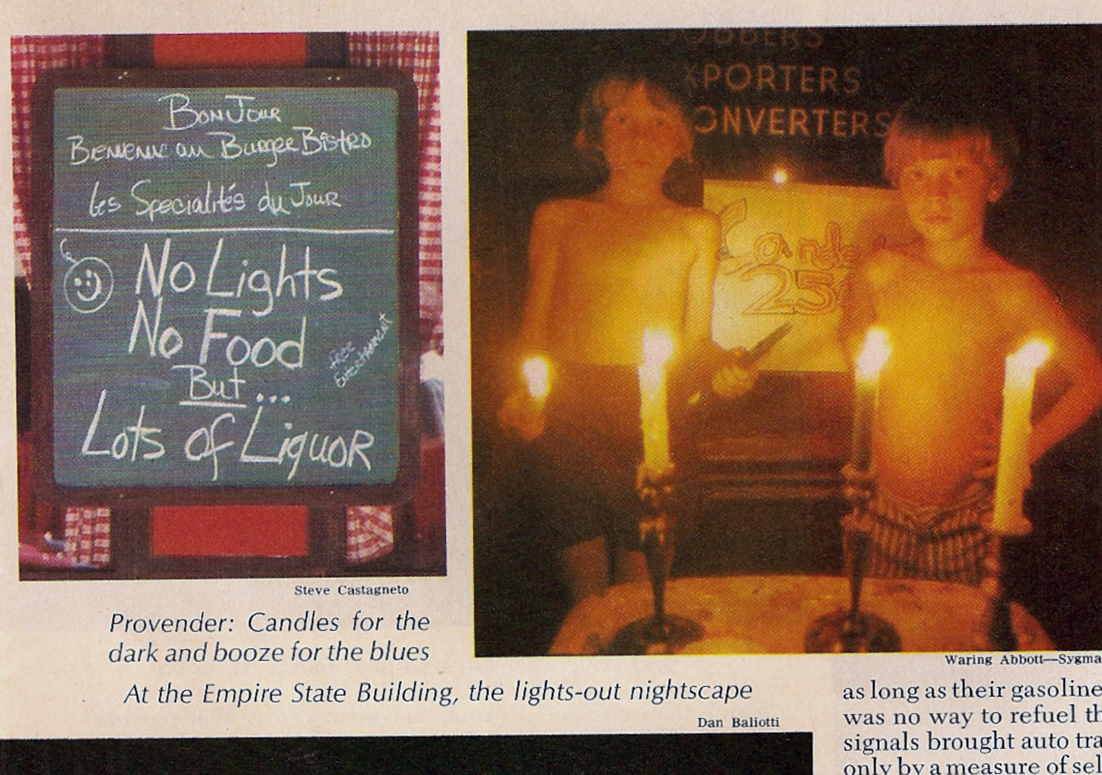 BonJour
Bienvenue au Burger Bistro
les Specialités du Jour
No Lights
No Food
free
Entertainment
But...
Lots of Liquor
JOBBERS
XPORTERS
ONVERTERS
Candles
25¢
Steve Castagneto
Provender: Candles for the
dark and booze for the blues
Waring Abbott—Sygma
At the Empire State Building, the lights-out nightscape
Dan Baliotti
as long as their gasoline
was no way to refuel th
signals brought auto tra
only by a measure of sel